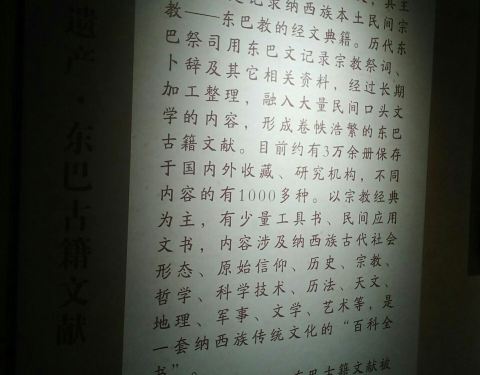 记录纳西族本土民间宗
教——东巴教的经文典籍。历代东
巴祭司用东巴文记录宗教祭词、
卜辞及其它相关资料，经过长期
加工整理，融入大量民间口头文
学的内容，形成卷帙浩繁的东巴
古籍文献。目前约有3万余册保存
于国内外收藏、研究机构，不同
内容的有1000多种。以宗教经典
为主，有少量工具书、民间应用
文书，内容涉及纳西族古代社会
形态、原始信仰、历史、宗教、
哲学、科学技术、历法、天文、
地理、军事、文学、艺术等，是
一套纳西族传统文化的“百科全
书”。
东巴古籍文献被
遗产·东巴古籍文献